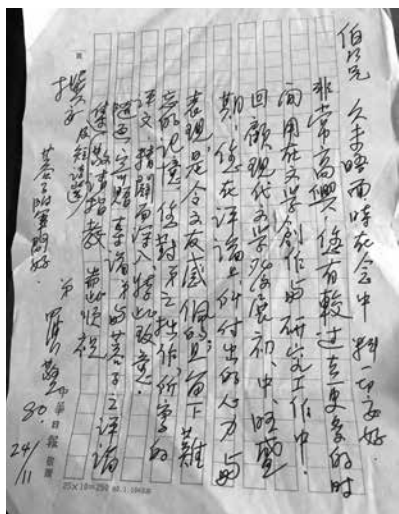 伯公兄 久未晤面時在念中 料一切安好.
非常高興 您有較過去更多的時
間用在文學創作與研究工作中.
回顧現代文學發展初、中、旺盛
期,您在評論上所付出的心力與
表現,是令文友感佩的,且留下難
忘的記憶,您對弟之拙作,所寫的
評文,精闢而深入,特此致意.
隨函寄贈弟與蓉子之評論
集敬請指教 耑此順祝
撰安
及短詩選
蓉子附筆問好.
弟 羅門
中華日報 敬贈
80. 24/11
25×10=250